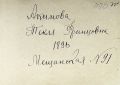 Акимова
Текля Францовна
1896
Мещанская № 91